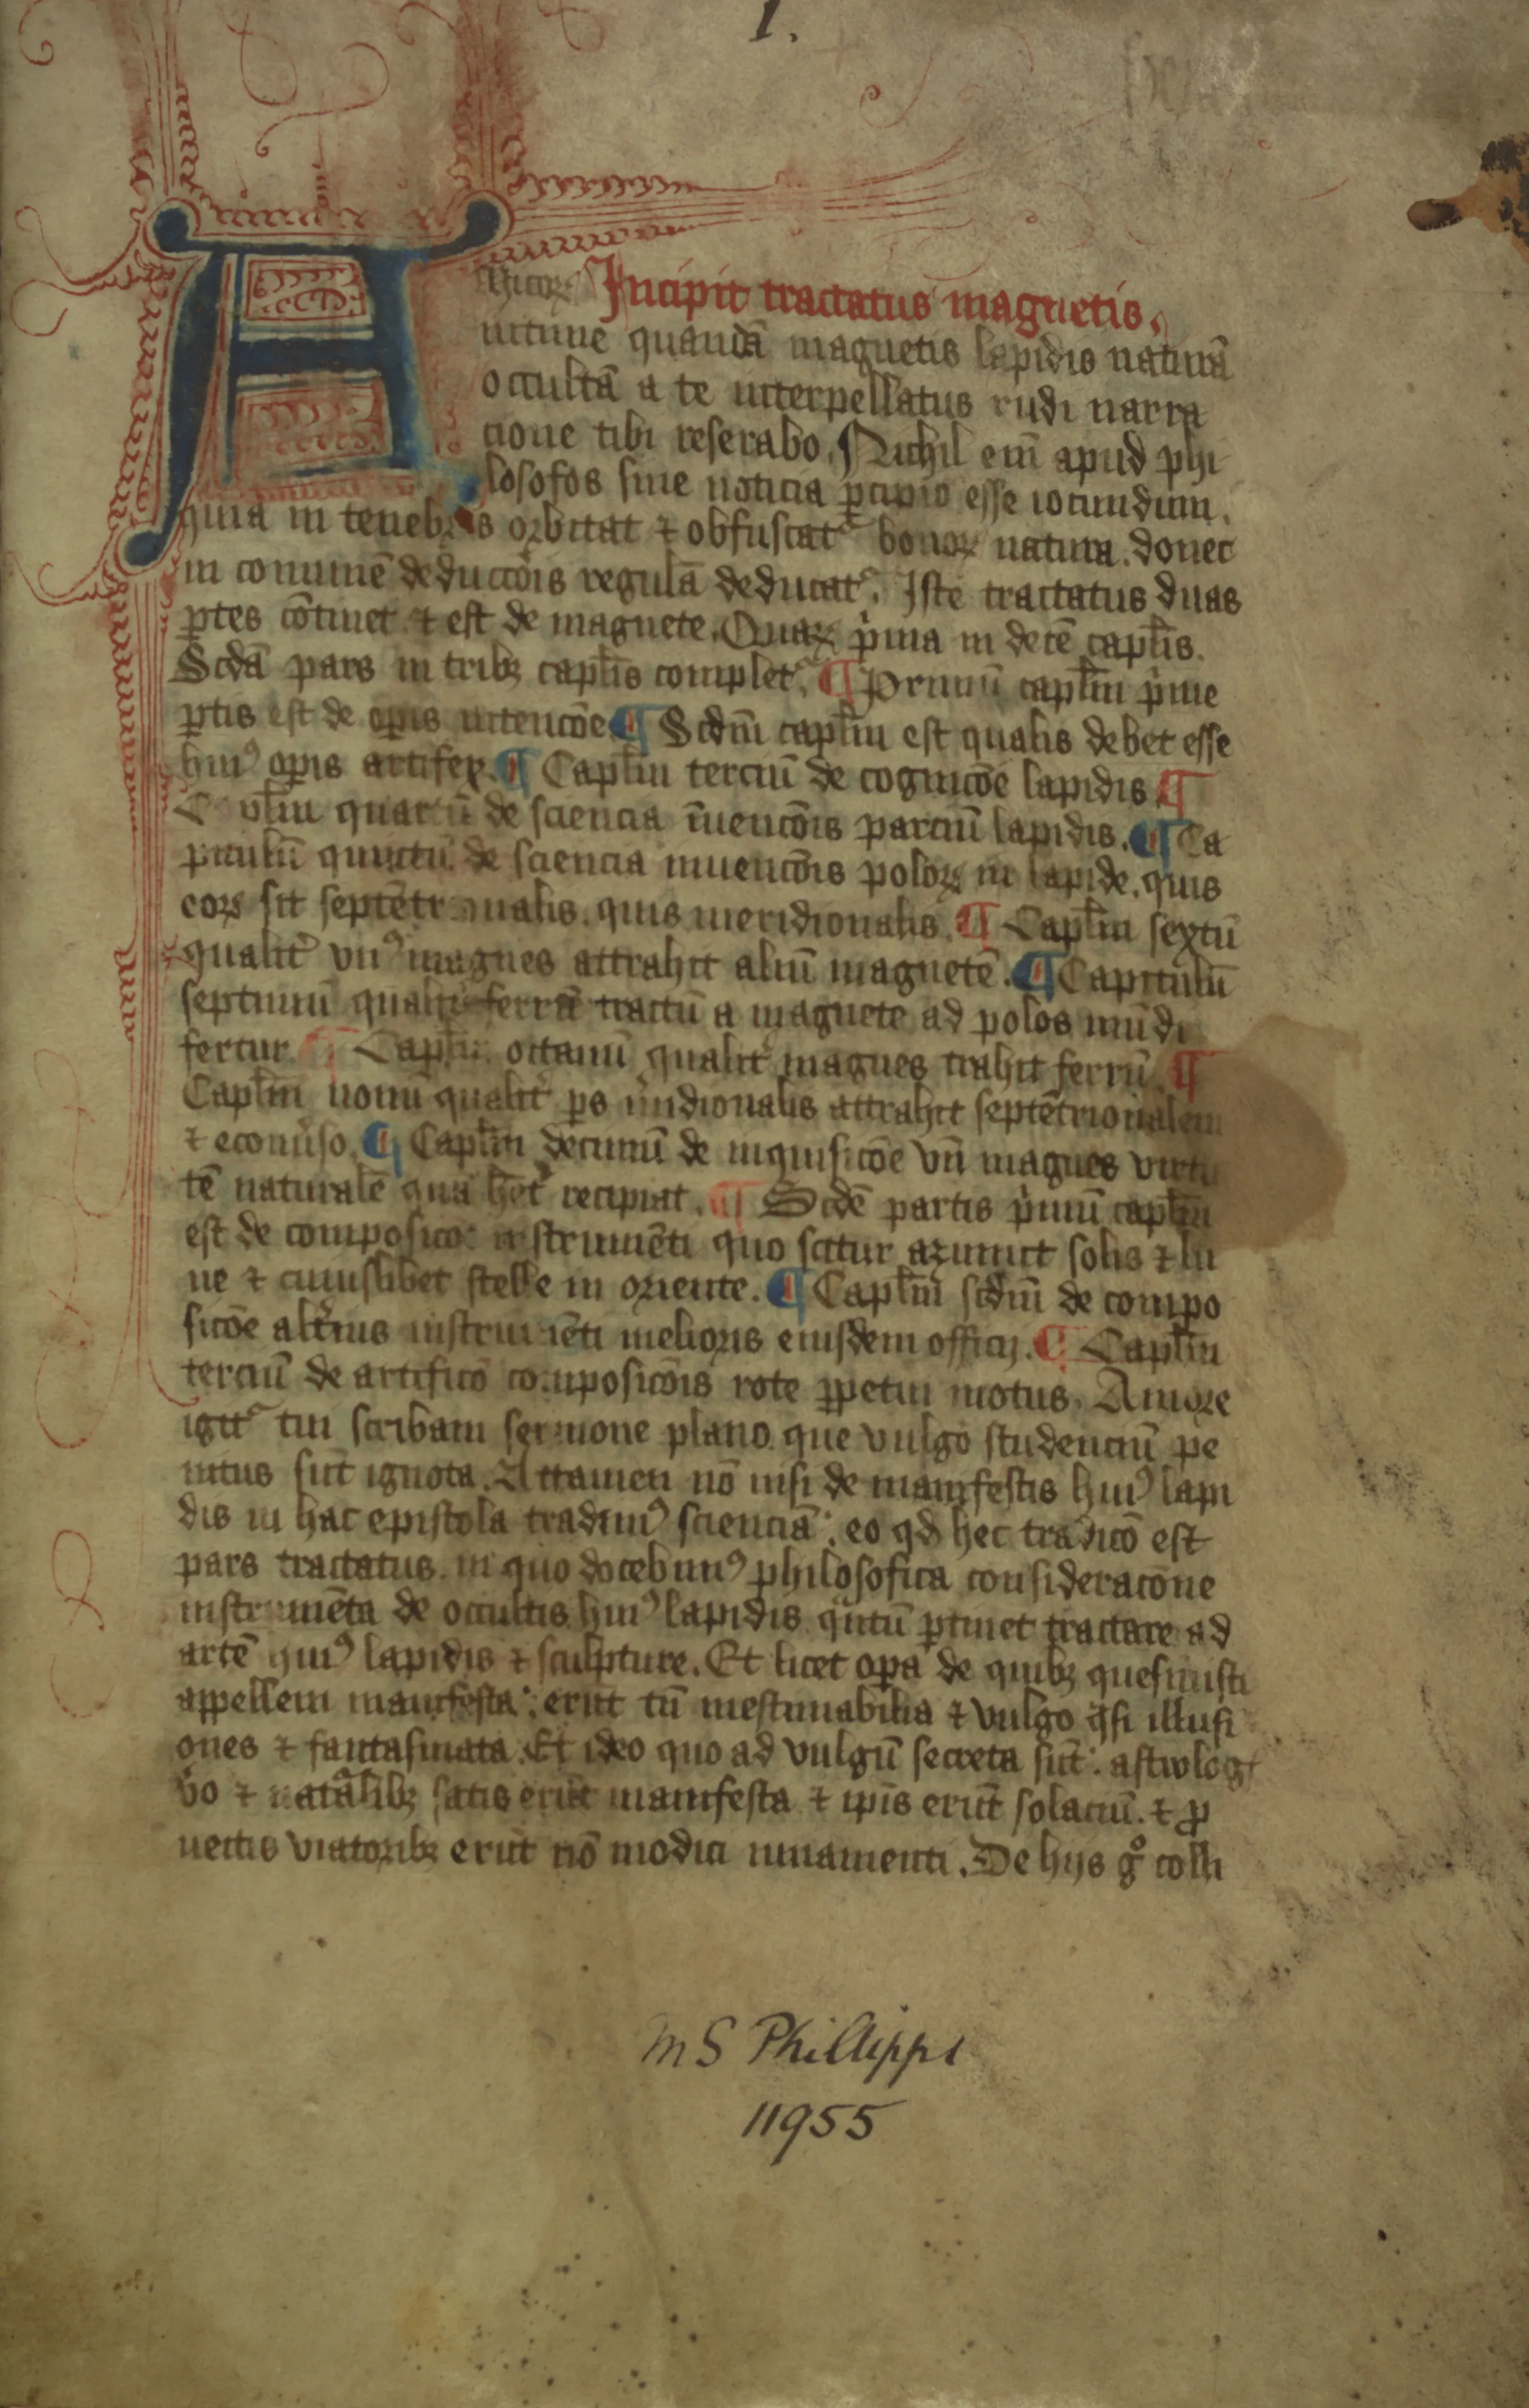 1.
Amicorꝝ Incipit tractatus magnetis.
intime quandā magnetis lapidis naturā
occultā a te interpellatus rudi narra
cione tibi reserabo. Nichil em̄ apud phi
losofos sine noticia ꝑcipio esse iocundum.
quia in tenebris orbitat ⁊ obfuscatᷣ bonoꝝ natura. donec
in comunē deductōis regulā deducatᷣ. Iste tractatus duas
ꝑtes cōtinet ⁊ est de magnete. Quaꝝ pͥma in decē capl̄is.
Scd̄a pars in tribꝫ capl̄is completᷣ. ¶ Primū capl̄m pͥme
ꝑtis est de oꝑis intencōe ¶ Scd̄m capl̄m est qualis debet esse
huiꝰ oꝑis artifex. ¶ Capl̄m terciū de cognicōe lapidis ¶
Capl̄m quartū de sciencia īuencōis parciū lapidis. ¶ Ca
pitulū quintū de sciencia inuencōis poloꝝ in lapide. quis
eoꝝ sit septētrionalis. quis meridionalis. ¶ Capl̄m sextū
qualit͛ vnꝰ magnes attrahit aliū magnetē. ¶ Capitulū
septimū qualit͛ ferrū tactū a magnete ad polos mūdi
fertur ¶ Capl̄m octauū qualit͛ magnes trahit ferrū. ¶
Capl̄m nonū qualit͛ ꝑs m͛idionalis attrahit septētrionalem
⁊ econu͛so. ¶ Capl̄m decimū de inquisicōe vn̄ magnes virtu
tē naturalē quā h̄et recipiat. ¶ Scd̄e partis pͥmū capl̄m
est de composicōe instrumēti quo scitur azimut solis ⁊ lu
ne ⁊ cuiuslibet stelle in oriente. ¶ Capl̄m scd̄m de compo
sicōe alt͛ius instrumēti melioris eiusdem officij. ¶ Capl̄m
terciū de artificō composicōis rote ꝑpetui motus. Amore
igitᷣ tui scribam sermone plano que vulgo studenciū pe
nitus sūt ignota. Attamen nō nisi de manifestis huiꝰ lapi
dis in hac epistola tradimꝰ scienciā. eo qd̄ hec tradicō est
pars tractatus. in quo docebimꝰ philosofica consideracōne
instrumēta de occultis huiꝰ lapidis qͣntū ꝑtinet tractare ad
artē huiꝰ lapidis ⁊ sculpture. Et licet oꝑa de quibꝫ quesiuisti
appellem manifesta. erūt tn̄ inestimabilia ⁊ vulgo qͣsi illusi
ones ⁊ fantasmata. Et ideo quo ad vulgū secreta sūt. astrolog
vͦo ⁊ natᷓalibꝫ satis erūt manifesta ⁊ ip̄is erūt solaciū. ⁊ ꝓ
uectis viatoribꝫ erūt nō modici iuuamenti. De hijs gͦ colli
MS Phillipps
11955